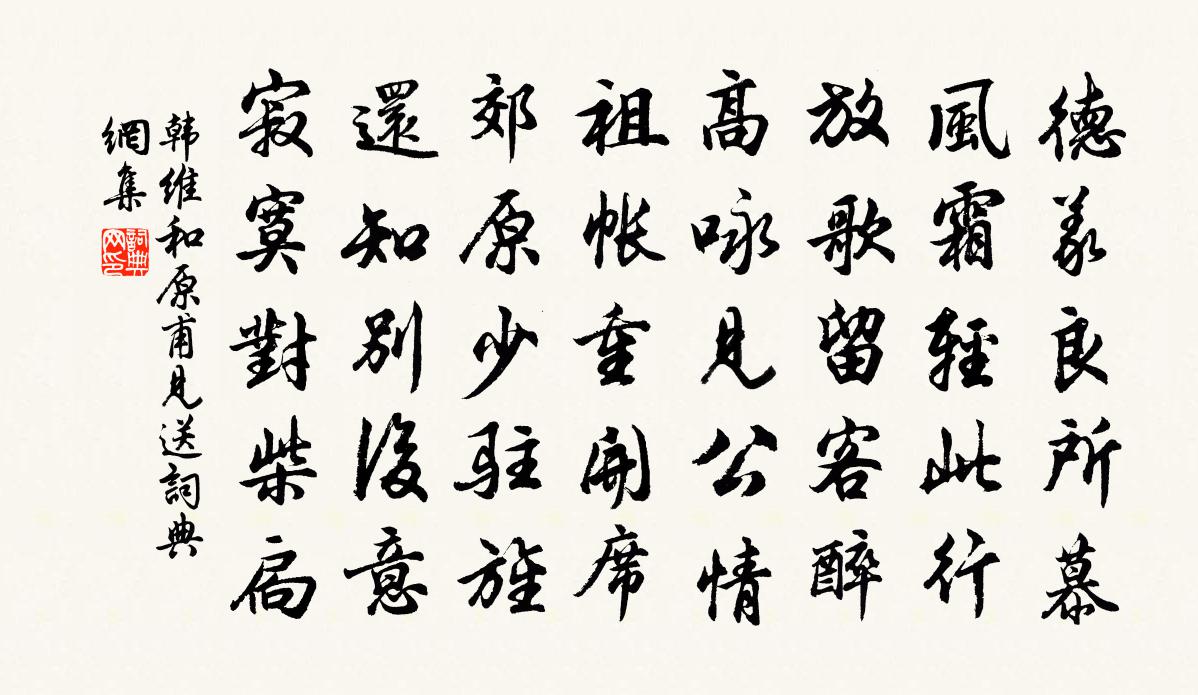 德義良所慕
風霜輕此行
放歌留客醉
高咏見公情
祖帳重開席
郊原少駐旌
還知別後意
寂寞對柴扃
韩维和原甫見送詞典
網集
詞典
网印